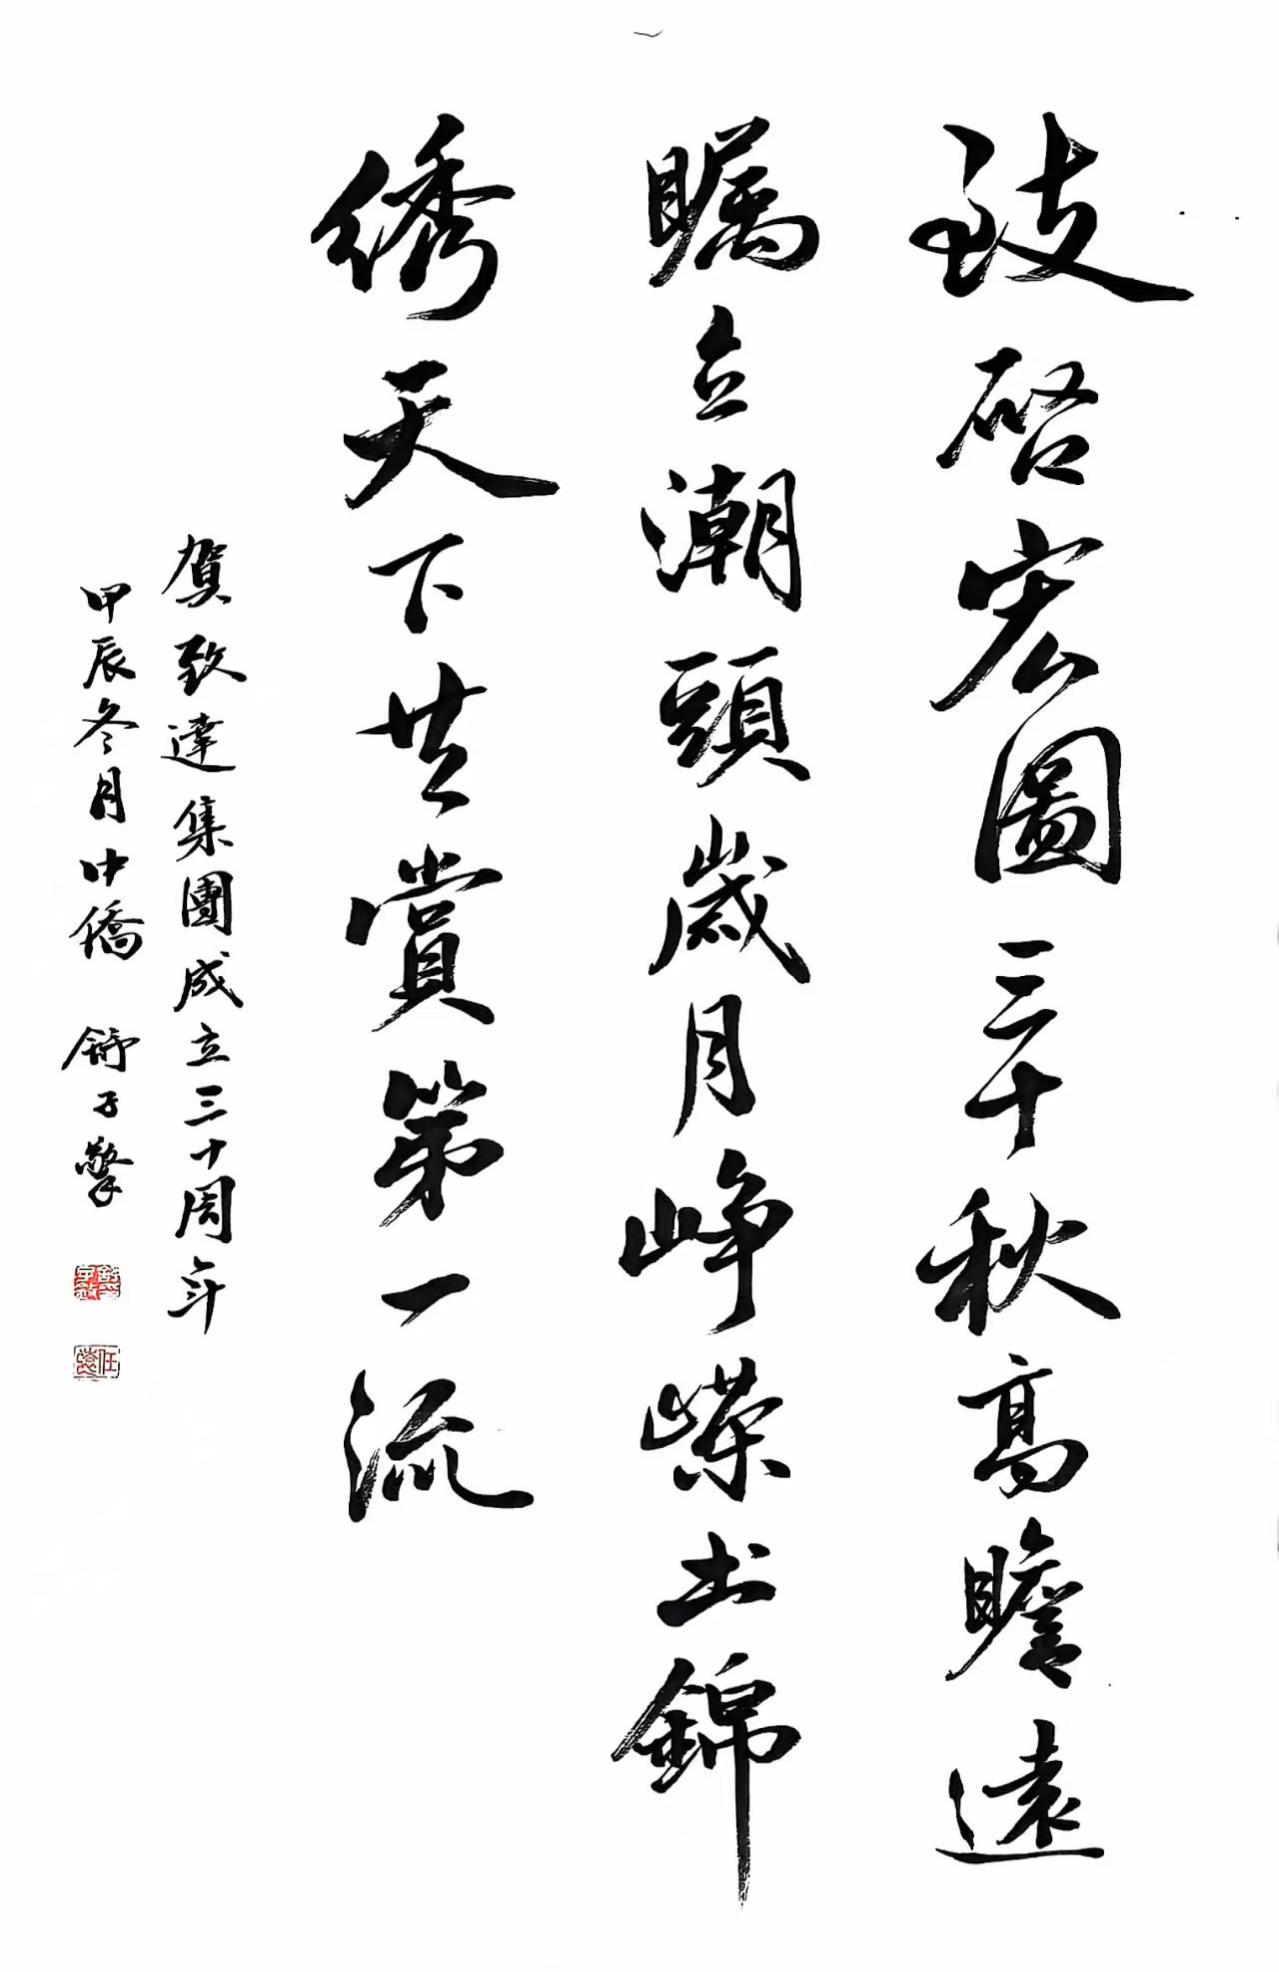 致啓宏圖三十秋高瞻遠
瞩立潮頭歲月峥嵘出錦
绣天下共賞第一流
贺致達集團成立三十周年
甲辰冬月中僑 舒子擎